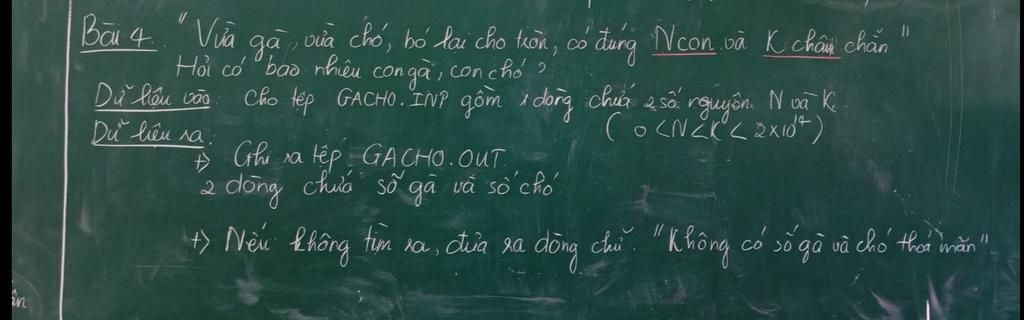 Bài 4. "Vừa gà, vừa chó, bó lại cho tròn, có đúng N con và K chân chẵn"
Hỏi có bao nhiêu con gà, con chó?
Dữ liệu vào: Cho tệp GACHO.INP gồm 1 dòng chứa 2 số nguyên N và K.
( 0 < N < K < 2x10^14 )
Dữ liệu ra:
+) Ghi ra tệp GACHO.OUT.
2 dòng chứa số gà và số chó
+) Nếu không tìm ra, đưa ra dòng chữ "Không có số gà và chó thoả mãn"